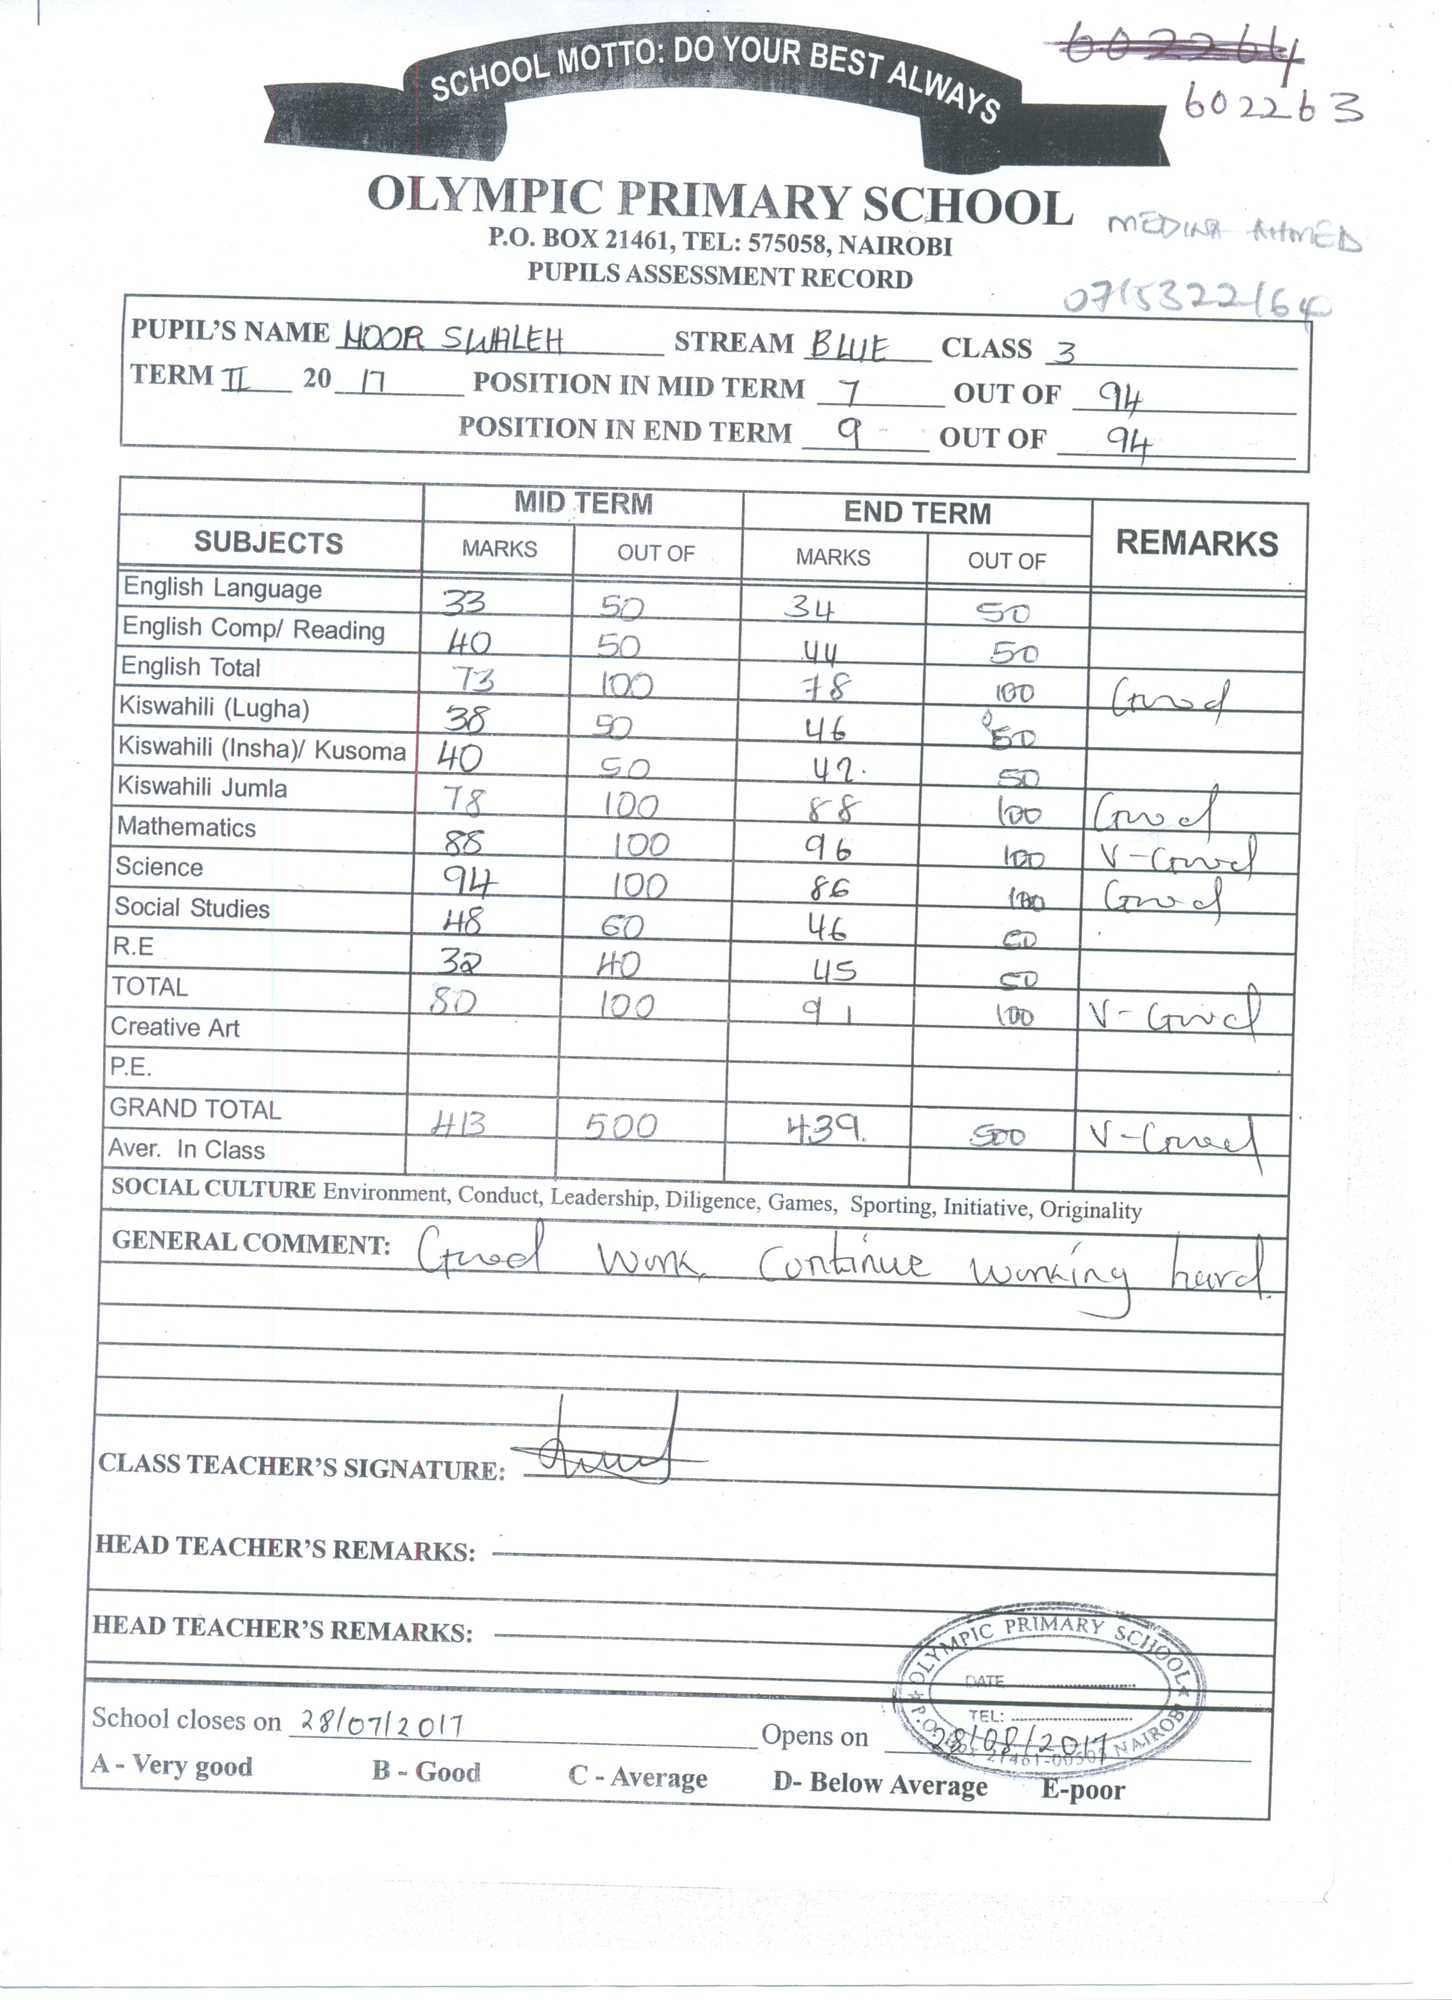 SCHOOL MOTTO: DO YOUR BEST ALWAYS
602264
602263
OLYMPIC PRIMARY SCHOOL
MEDINA AHMED
P.O. BOX 21461, TEL: 575058, NAIROBI
PUPILS ASSESSMENT RECORD
0715322164
PUPIL'S NAME NOOR SWALEH STREAM BLUE CLASS 3
TERM II 20 17 POSITION IN MID TERM 7 OUT OF 94
POSITION IN END TERM 9 OUT OF 94
MID TERM END TERM
SUBJECTS MARKS OUT OF MARKS OUT OF REMARKS
English Language 33 50 34 50
English Comp/ Reading 40 50 44 50
English Total 73 100 78 100 Good
Kiswahili (Lugha) 38 50 46 50
Kiswahili (Insha)/ Kusoma 40 50 42. 50
Kiswahili Jumla 78 100 88 100 Good
Mathematics 88 100 96 100 V-Good
Science 94 100 86 100 Good
Social Studies 48 60 46 50
R.E 32 40 45 50
TOTAL 80 100 91 100 V-Good
Creative Art
P.E.
GRAND TOTAL 413 500 439. 500 V-Good
Aver. In Class
SOCIAL CULTURE Environment, Conduct, Leadership, Diligence, Games, Sporting, Initiative, Originality
GENERAL COMMENT: Good work, continue working hard.
CLASS TEACHER'S SIGNATURE:
HEAD TEACHER'S REMARKS:
HEAD TEACHER'S REMARKS:
OLYMPIC PRIMARY SCHOOL
DATE
TEL:
P.O. Box 21461-00505 NAIROBI
School closes on 28/07/2017 Opens on 28/08/2017
A - Very good B - Good C - Average D- Below Average E-poor